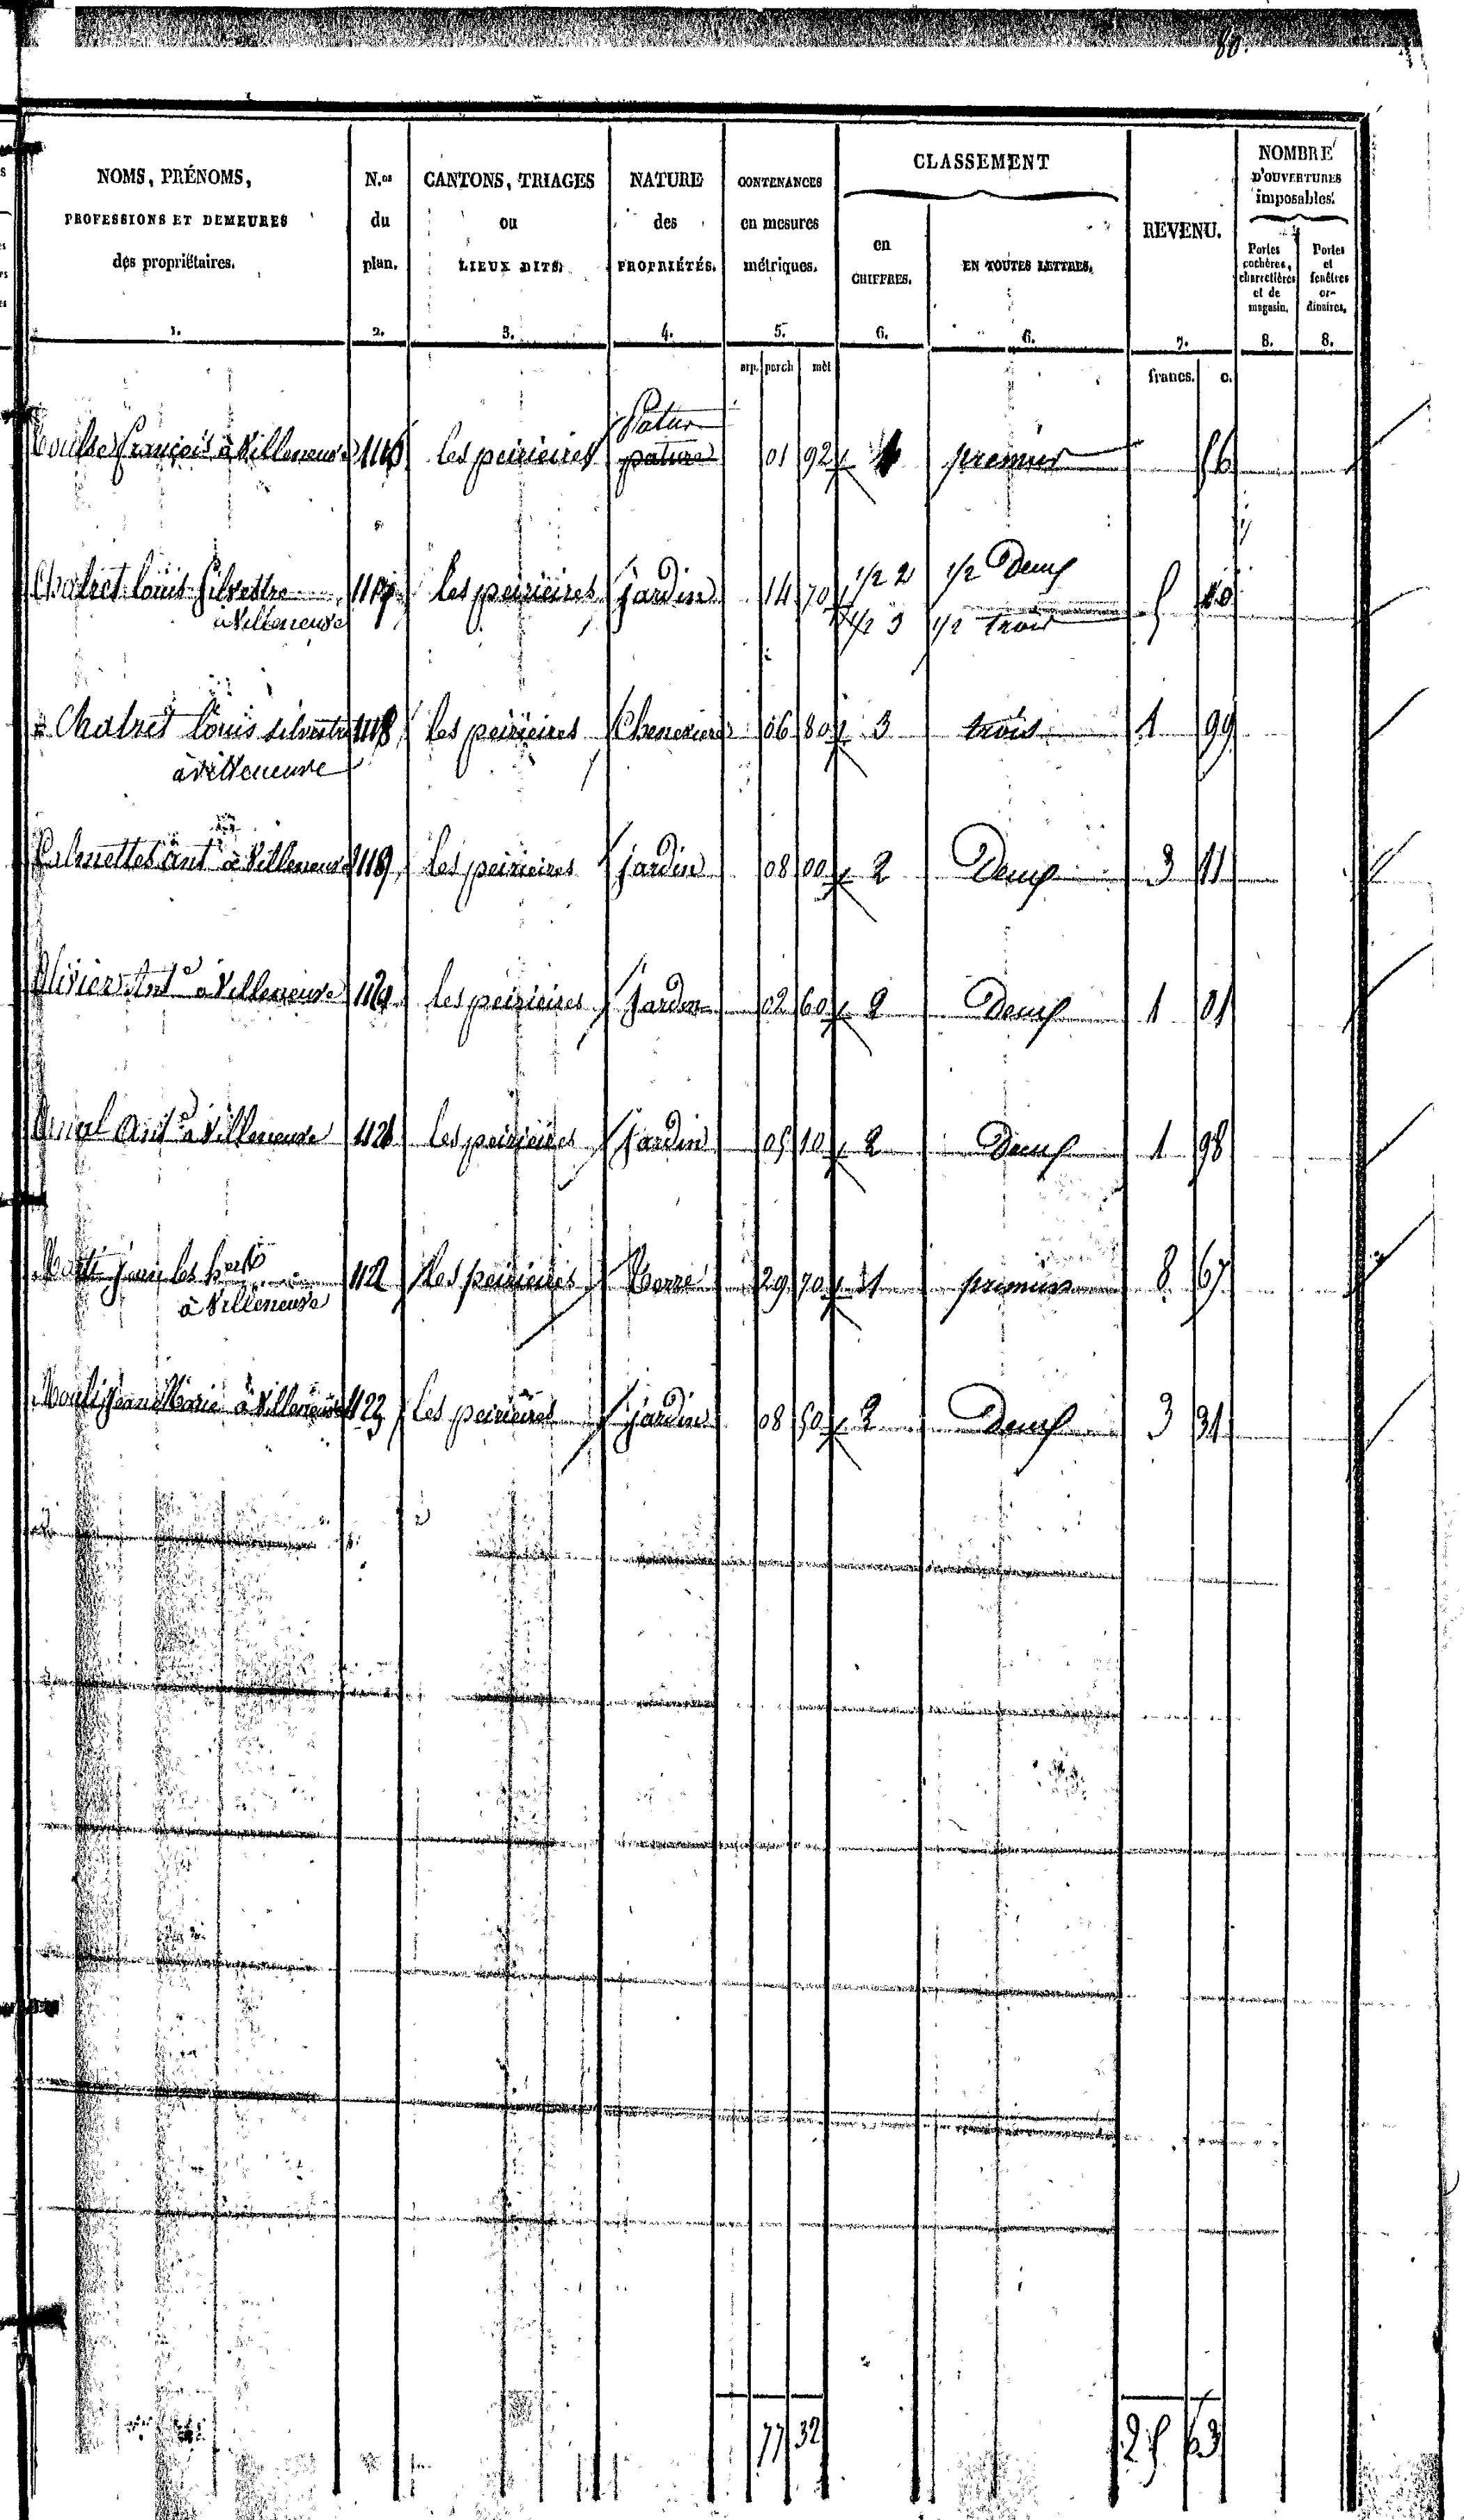 80.
NOMS, PRÉNOMS, PROFESSIONS ET DEMEURES des propriétaires. 1.
N.os du plan. 2.
CANTONS, TRIAGES ou LIEUX DITS. 3.
NATURE des PROPRIÉTÉS. 4.
CONTENANCES en mesures métriques. 5.
CLASSEMENT
en CHIFFRES. 6.
EN TOUTES LETTRES. 6.
REVENU. 7.
NOMBRE D'OUVERTURES imposables.
Portes cochères, charretières et de magasin. 8.
Portes et fenêtres ordinaires. 8.
arp. perch. mèt. francs. c.
Patur
François à Villeneuve 1116 les peirieires pature 01 92 premier
Chatret louis Silvestre 1117 les peirieires jardin 14 70 1/2 2 1/2 Deux
à Villeneuve 1/2 3 1/2 trois
Chatret louis silvestre 1118 les peirieires Cheneviere 06 80 3 trois 1 99
à Villeneuve
Palmettes ant à Villeneuve 1119 les peirieires jardin 08 00 2 Deux 3 11
Olivier Ant à Villeneuve 1120 les peirieires Jardin 02 60 2 Deux 1 01
Ant à Villeneuve 1121 les peirieires jardin 05 10 2 Deux 1 98
les 1122 les peirieires Terre 29 70 1 premiere 8 67
à Villeneuve
Jean Marie à Villeneuve 1123 les peirieires jardin 08 50 2 Deux 3 31
77 32 25 63